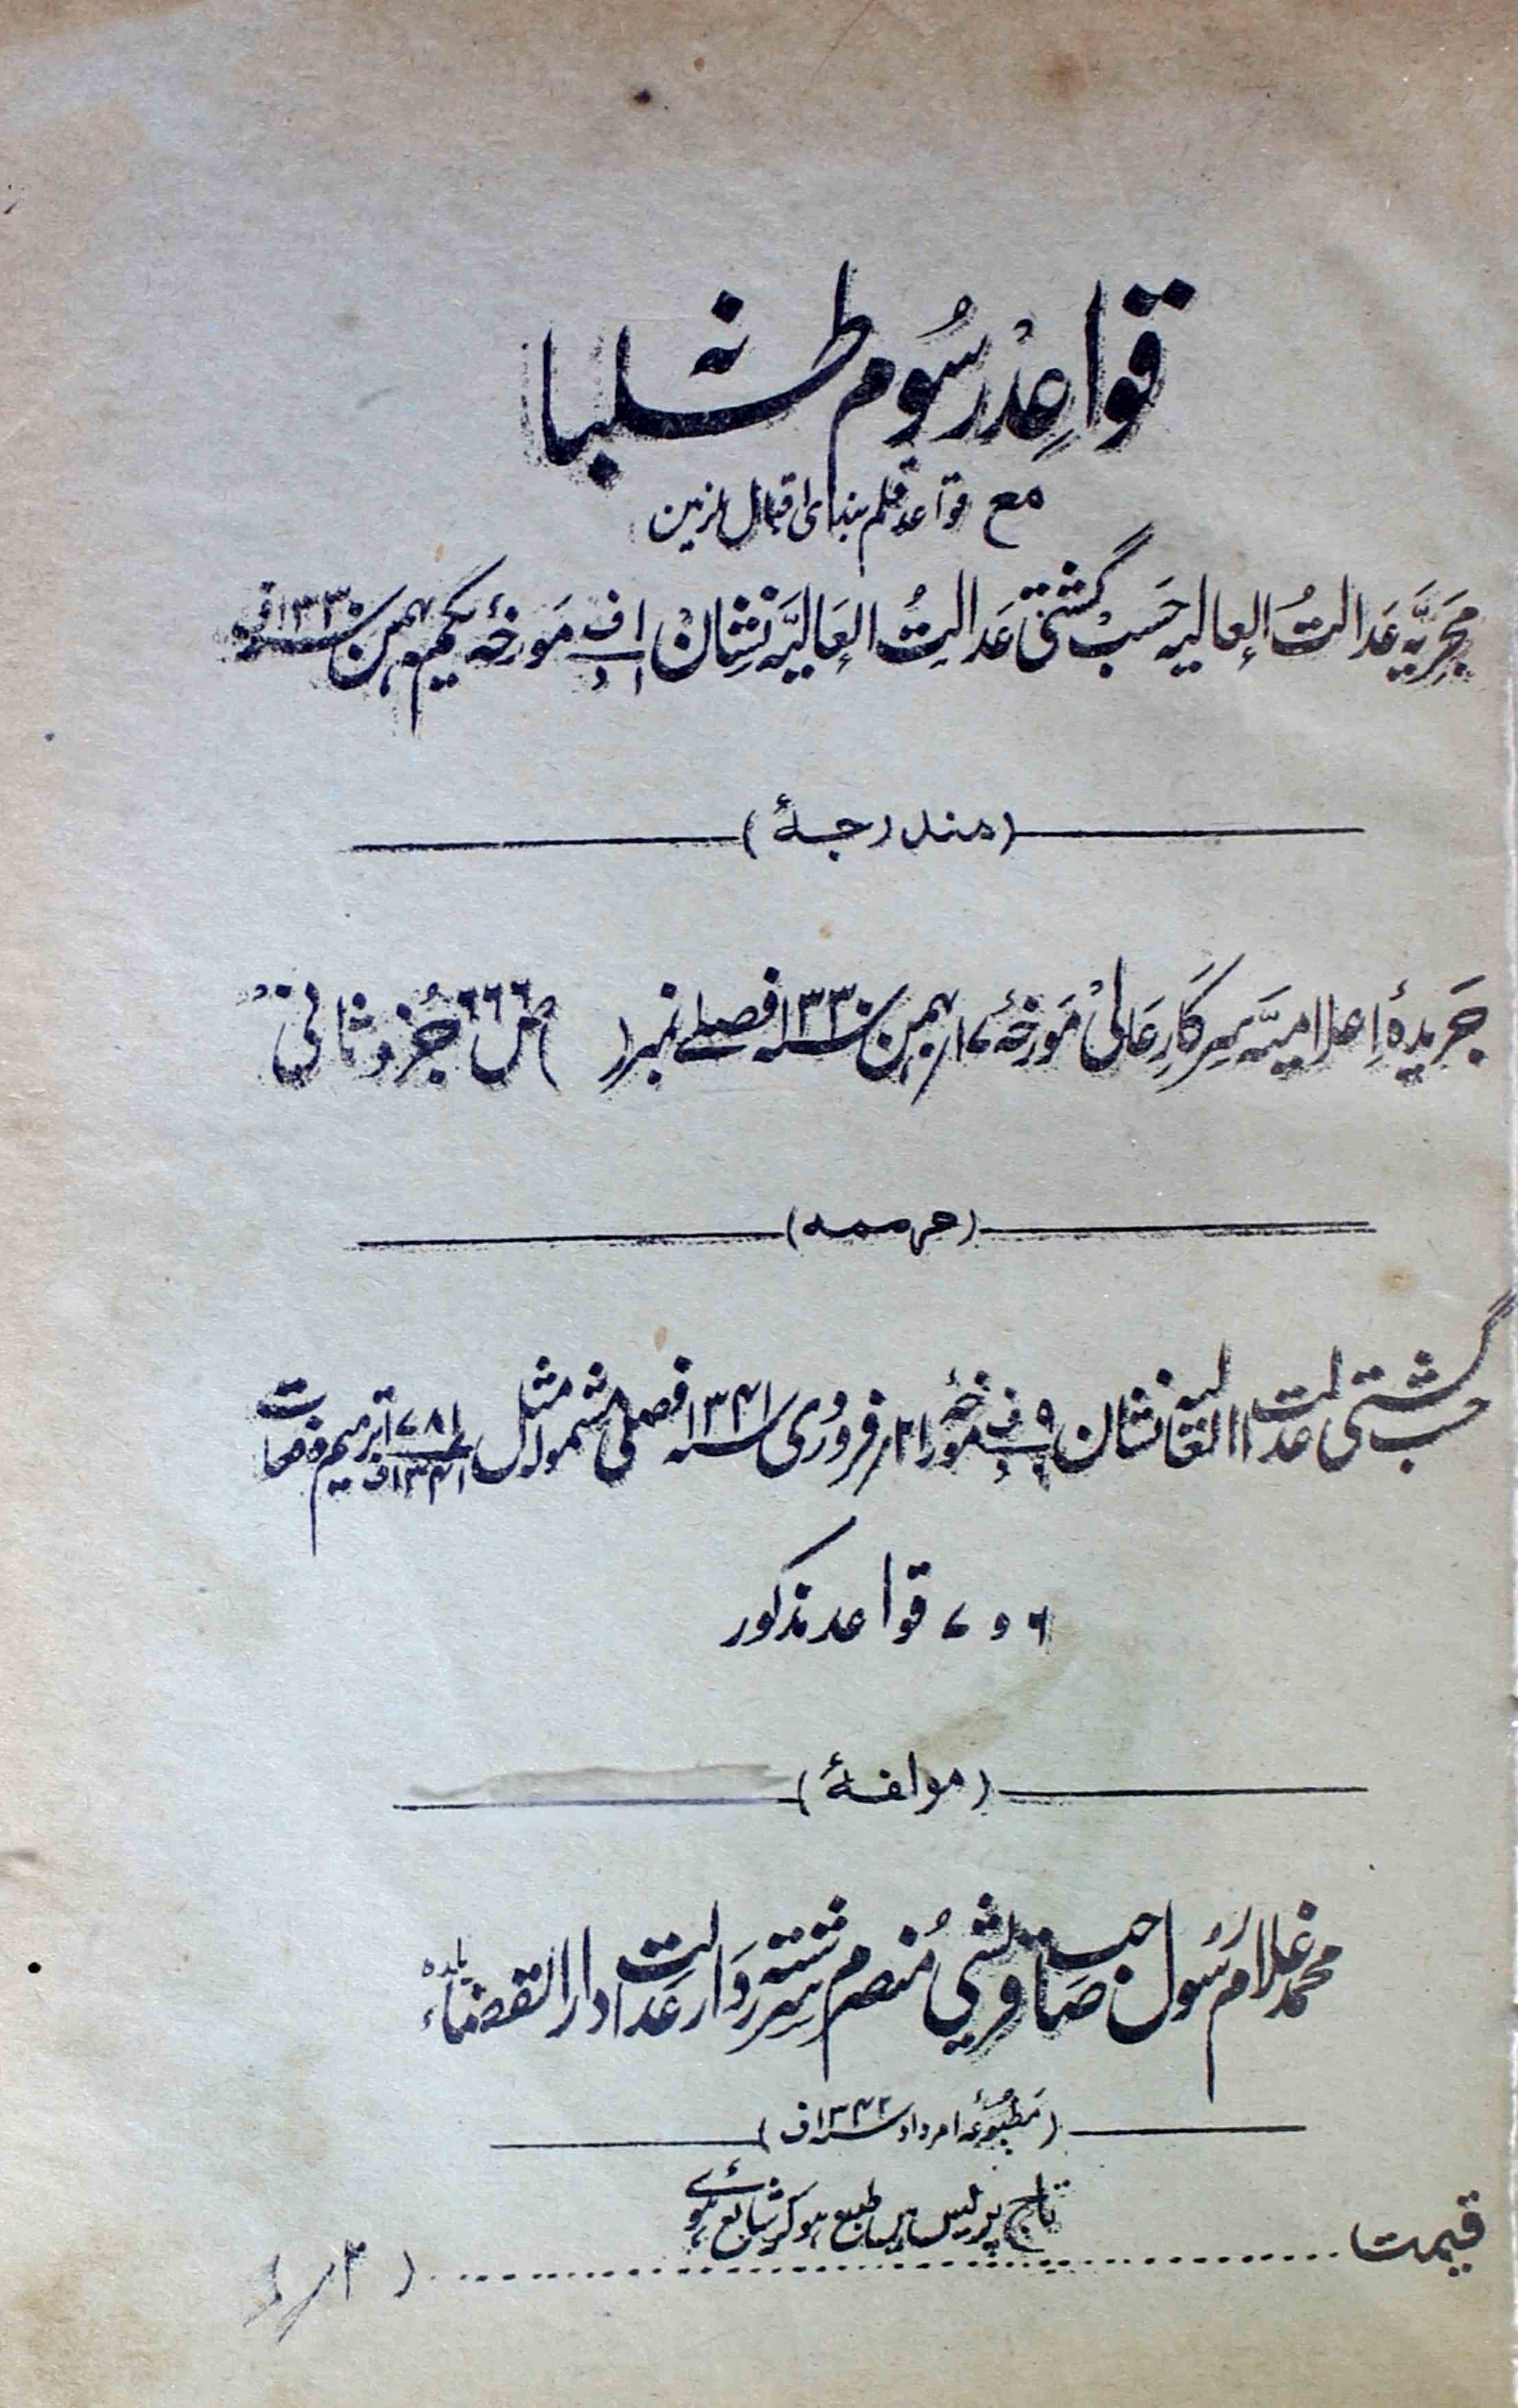 قواعد رسوم طلبانہ
مع قواعد قلم بندی اقبال لزین
مجریہ عدالت العالیہ حسب گشتی عدالت العالیہ نشان ۱ ف مورخہ یکم بہمن سنہ ۱۳۳۰ ف
(مندرجۂ)
جریدۂ اعلامیہ سرکار عالی مورخہ ۱۷ بہمن سنہ ۱۳۳۰ فصلی نمبر ( ) ص ۶۶۶ جزو ثانی
(مرممہ)
حسب گشتی عدالت العالیہ نشان ۹ ف مورخہ ۲۱ فروردی سنہ ۱۳۴۱ فصلی مشمولہ مثل ۱۷۸۱ ۱۳۴۱ف ترمیم دفعات
۶ و ۷ قواعد مذکور
(مولفۂ)
محمد غلام رسول صاحب قریشی منصرم سررشتہ دار عدالت دارالقضاء بلدہ
(مطبوعہ امرداد سنہ ۱۳۴۲ ف)
تاج پریس میں طبع ہوکر شایع ہوئے
قیمت (۲؍)